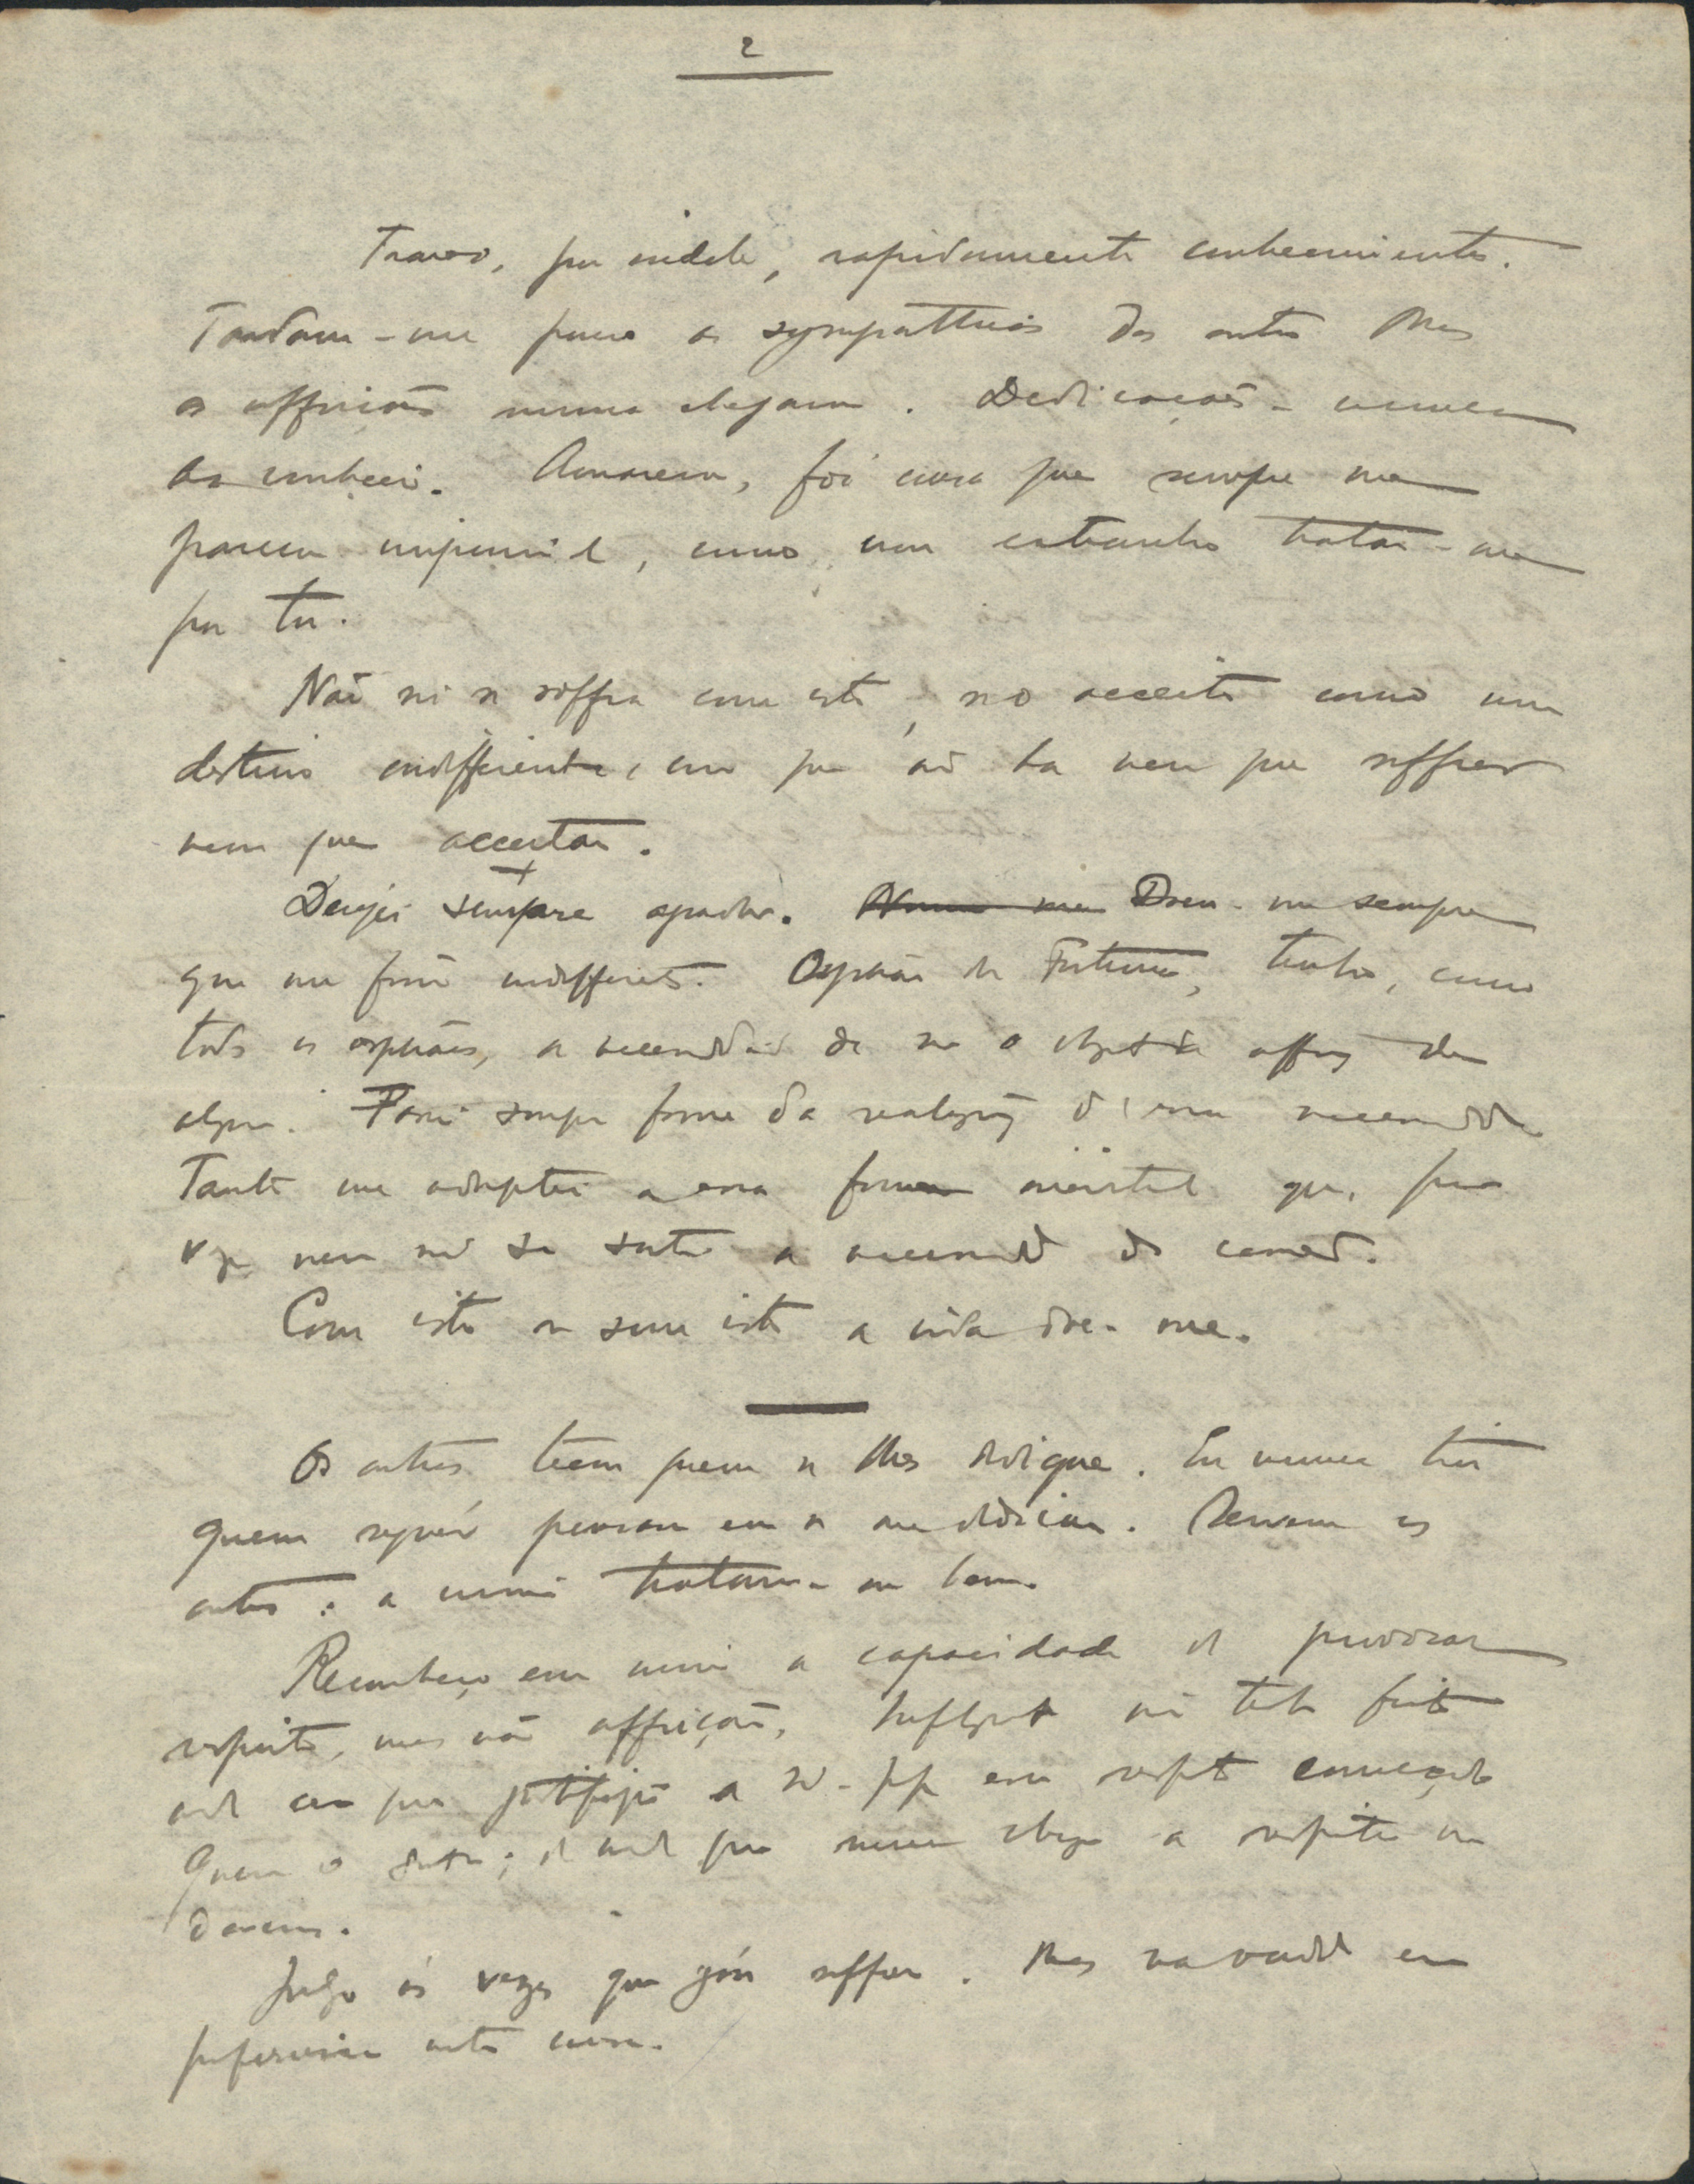 2
Travo, por indole, rapidamente conhecimentos.
Tardam-me pouco as sympathias dos outros. Mas
as affeições nunca chegam. Dedicações - nunca
as conheci. Amarem, foi coisa que sempre me
pareceu impossivel, como um extranho tratar-me
por tu.
Não sei se soffra com isto, se o acceite como um
destino indifferente, em que não ha nem que soffrer
nem que acceitar.
Desejei sempre agradar. Doeu-me sempre
que me fossem indifferentes. Orphão da Fortuna, tenho, como
todos os orphãos, a necessidade de ser o objecto da affeição de
alguem. Passei sempre fome da realização d'essa necessidade.
Tanto me adaptei a essa fome inevitavel que, por
vezes, nem sei se sinto a necessidade de comer.
Com isto ou sem isto a vida doe-me.
Os outros teem quem se lhes dedique. Eu nunca tive
quem sequer pensasse em se me dedicar. Servem os
outros: a mim tratam-me bem.
Reconheço em mim a capacidade de provocar
respeito, mas não affeição. Infelizmente não tenho feito
nada com que justifique a si-proprio esse respeito começado
quem o sinta; de modo que nunca chega a respeitar-me
deveras.
Julgo ás vezes que góso soffrer. Mas na verdade eu
preferiria outra coisa.